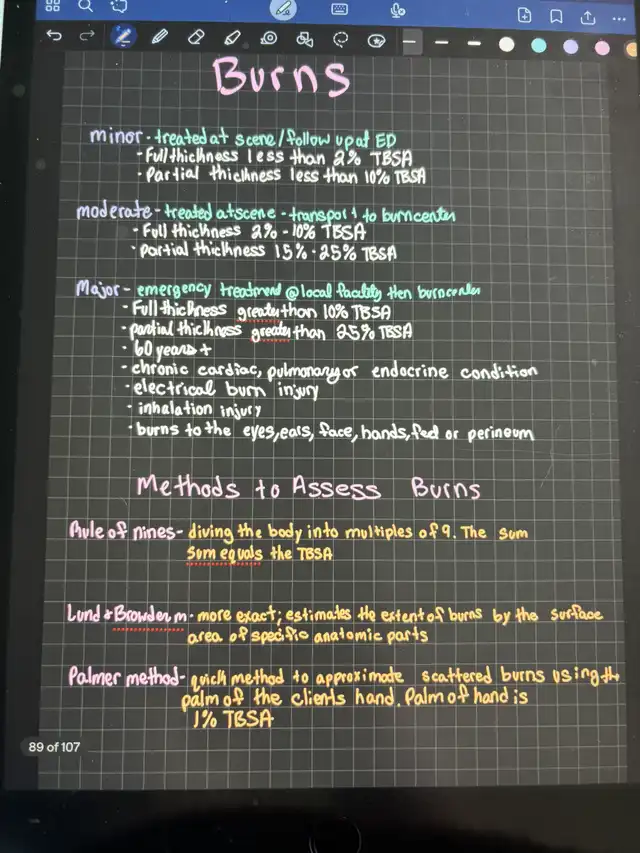 Burns
minor - treated at scene/follow up at ED
- Full thickness less than 2% TBSA
- Partial thickness less than 10% TBSA
moderate - treated at scene - transport to burn center
- Full thickness 2% - 10% TBSA
- partial thickness 15% - 25% TBSA
Major - emergency treatment @ local facility then burn center
- Full thickness greater than 10% TBSA
- partial thickness greater than 25% TBSA
- 60 years +
- chronic cardiac, pulmonary or endocrine condition
- electrical burn injury
- inhalation injury
- burns to the eyes, ears, face, hands, feed or perineum
Methods to Assess Burns
Rule of nines - diving the body into multiples of 9. The sum
sum equals the TBSA
Lund + Browder m - more exact; estimates the extent of burns by the surface
area of specific anatomic parts
Palmer method - quick method to approximate scattered burns using the
palm of the clients hand. Palm of hand is
1% TBSA
89 of 107